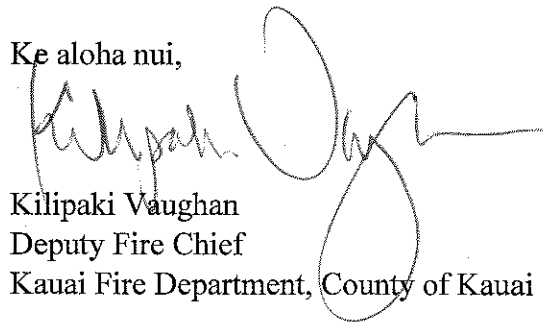 Ke aloha nui,
Kilipaki Vaughan
Kilipaki Vaughan
Deputy Fire Chief
Kauai Fire Department, County of Kauai